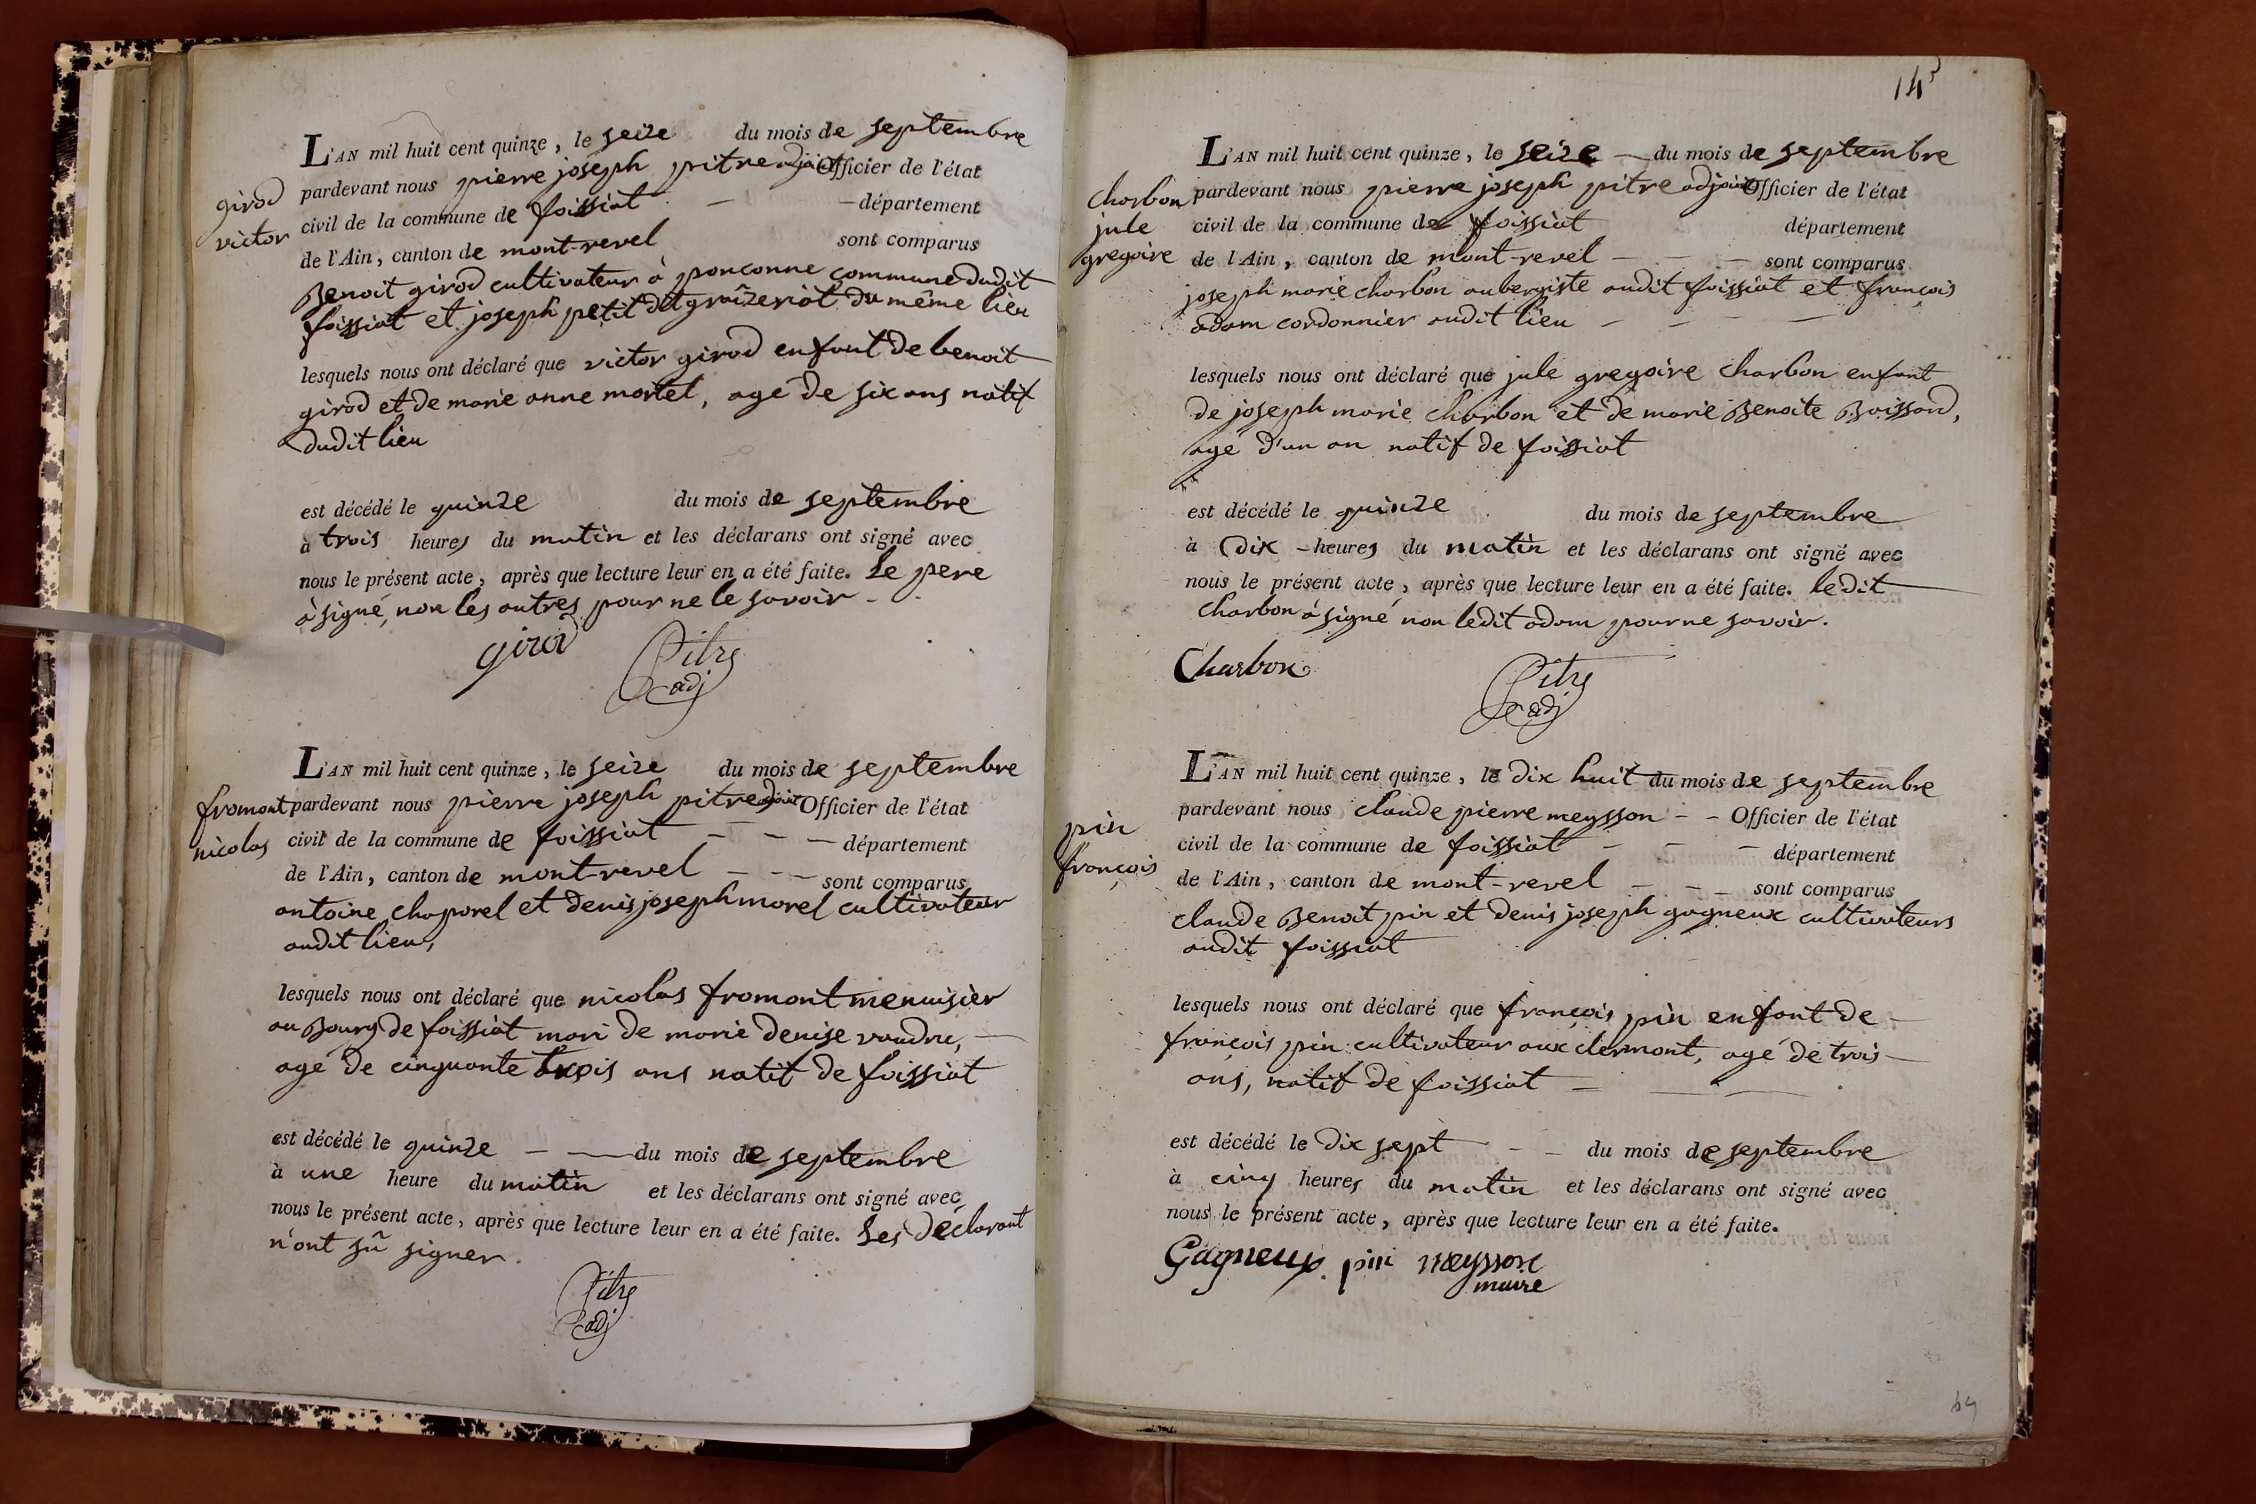 L'AN mil huit cent quinze, le seize du mois de septembre
pardevant nous pierre joseph pitre adjoint Officier de l'état
girod
civil de la commune de foissiat - - département
victor
de l'Ain, canton de mont-revel sont comparus
Benoit girod cultivateur à ponconne commune dudit
foissiat et joseph petit dit graîzeriat du même lieu
lesquels nous ont déclaré que victor girod enfant de benoit
girod et de marie anne mortel, agé de six ans natif
dudit lieu
est décédé le quinze du mois de septembre
à trois heures du matin et les déclarans ont signé avec
nous le présent acte, après que lecture leur en a été faite. Le pere
à signé, non les autres pour ne le savoir -
girod Pitre
adj
L'AN mil huit cent quinze, le seize du mois de septembre
fromont pardevant nous pierre joseph pitre adjoint Officier de l'état
nicolas civil de la commune de foissiat - - - département
de l'Ain, canton de mont-revel - - - sont comparus
antoine chaparel et denis joseph morel cultivateur
audit lieu,
lesquels nous ont déclaré que nicolas fromont menuisièr
au Bourg de foissiat mari de marie denise vaudru,
agé de cinquante trois ans natif de foissiat
est décédé le quinze - - du mois de septembre
à une heure du matin et les déclarans ont signé avec
nous le présent acte, après que lecture leur en a été faite. Les déclarant
n'ont sû signer.
Pitre
adj
143
L'AN mil huit cent quinze, le seize - du mois de septembre
charbon pardevant nous pierre joseph pitre adjoint Officier de l'état
jule civil de la commune de foissiat département
gregoire de l'Ain, canton de mont-revel - - - sont comparus
joseph marie charbon aubergiste audit foissiat et françois
adam cordonnier audit lieu - - - -
lesquels nous ont déclaré que jule gregoire charbon enfant
de joseph marie charbon et de marie Benoite Boissard,
agé d'un an natif de foissiat
est décédé le quinze du mois de septembre
à dix - heures du matin et les déclarans ont signé avec
nous le présent acte, après que lecture leur en a été faite. ledit
charbon à signé non ledit adam pour ne savoir.
Charbon Pitre
adj
L'AN mil huit cent quinze, le dix huit du mois de septembre
pardevant nous claude pierre meysson - - Officier de l'état
pin civil de la commune de foissiat - - - département
françois de l'Ain, canton de mont-revel - - - sont comparus
claude Benoit pin et denis joseph gagneux cultivateurs
audit foissiat
lesquels nous ont déclaré que françois pin enfant de -
françois pin cultivateur aux clermont, agé de trois -
ans, natif de foissiat - - -
est décédé le dix sept - - du mois de septembre
à cinq heures du matin et les déclarans ont signé avec
nous le présent acte, après que lecture leur en a été faite.
Gagneux pin meysson
maire